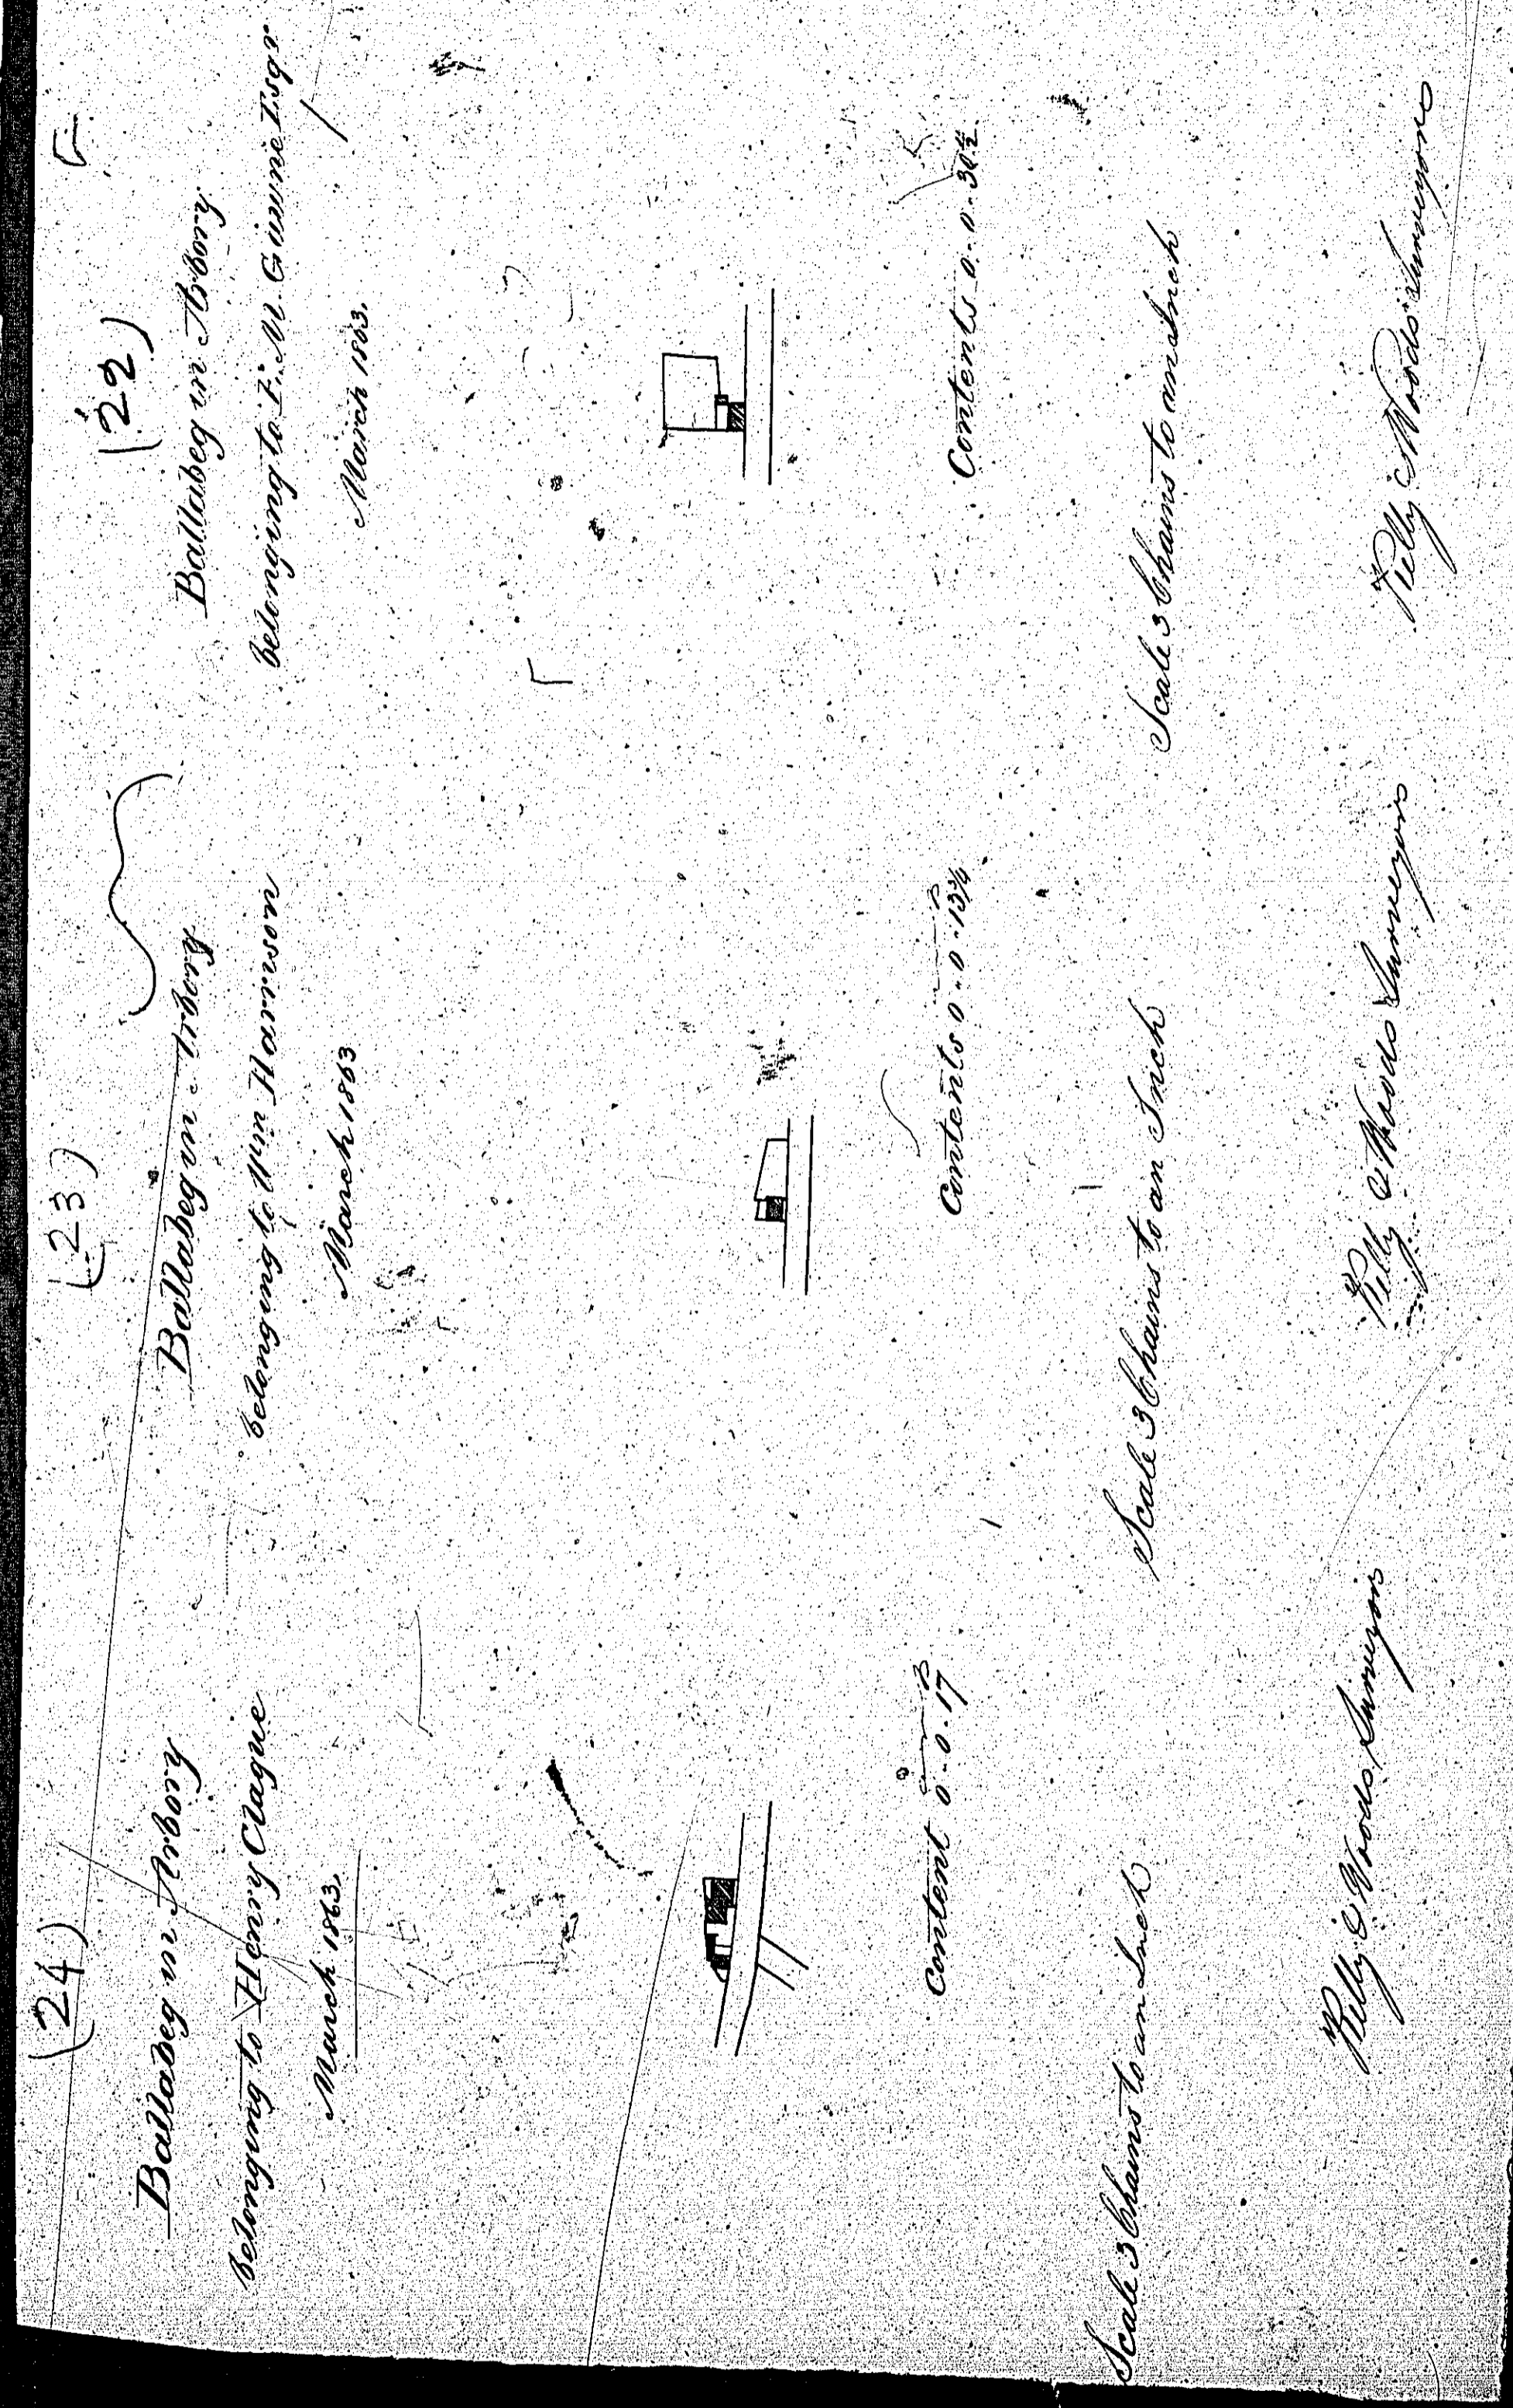 (24)
Ballabeg in Arbory
belonging to Henry Clague
March 1863.
Content 0..0..17
Scale 3 Chains to an Inch
Kelly & Woods Surveyors
(23)
Ballabeg in Arbory
belonging to Wm Harrison
March 1863
Contents 0..0..13¾
Scale 3 Chains to an Inch
Kelly & Woods Surveyors
(22)
Ballabeg in Arbory
belonging to E. M. Gawne Esqr
March 1863.
Contents 0..0..30½
Scale 3 Chains to an Inch
Kelly & Woods Surveyors